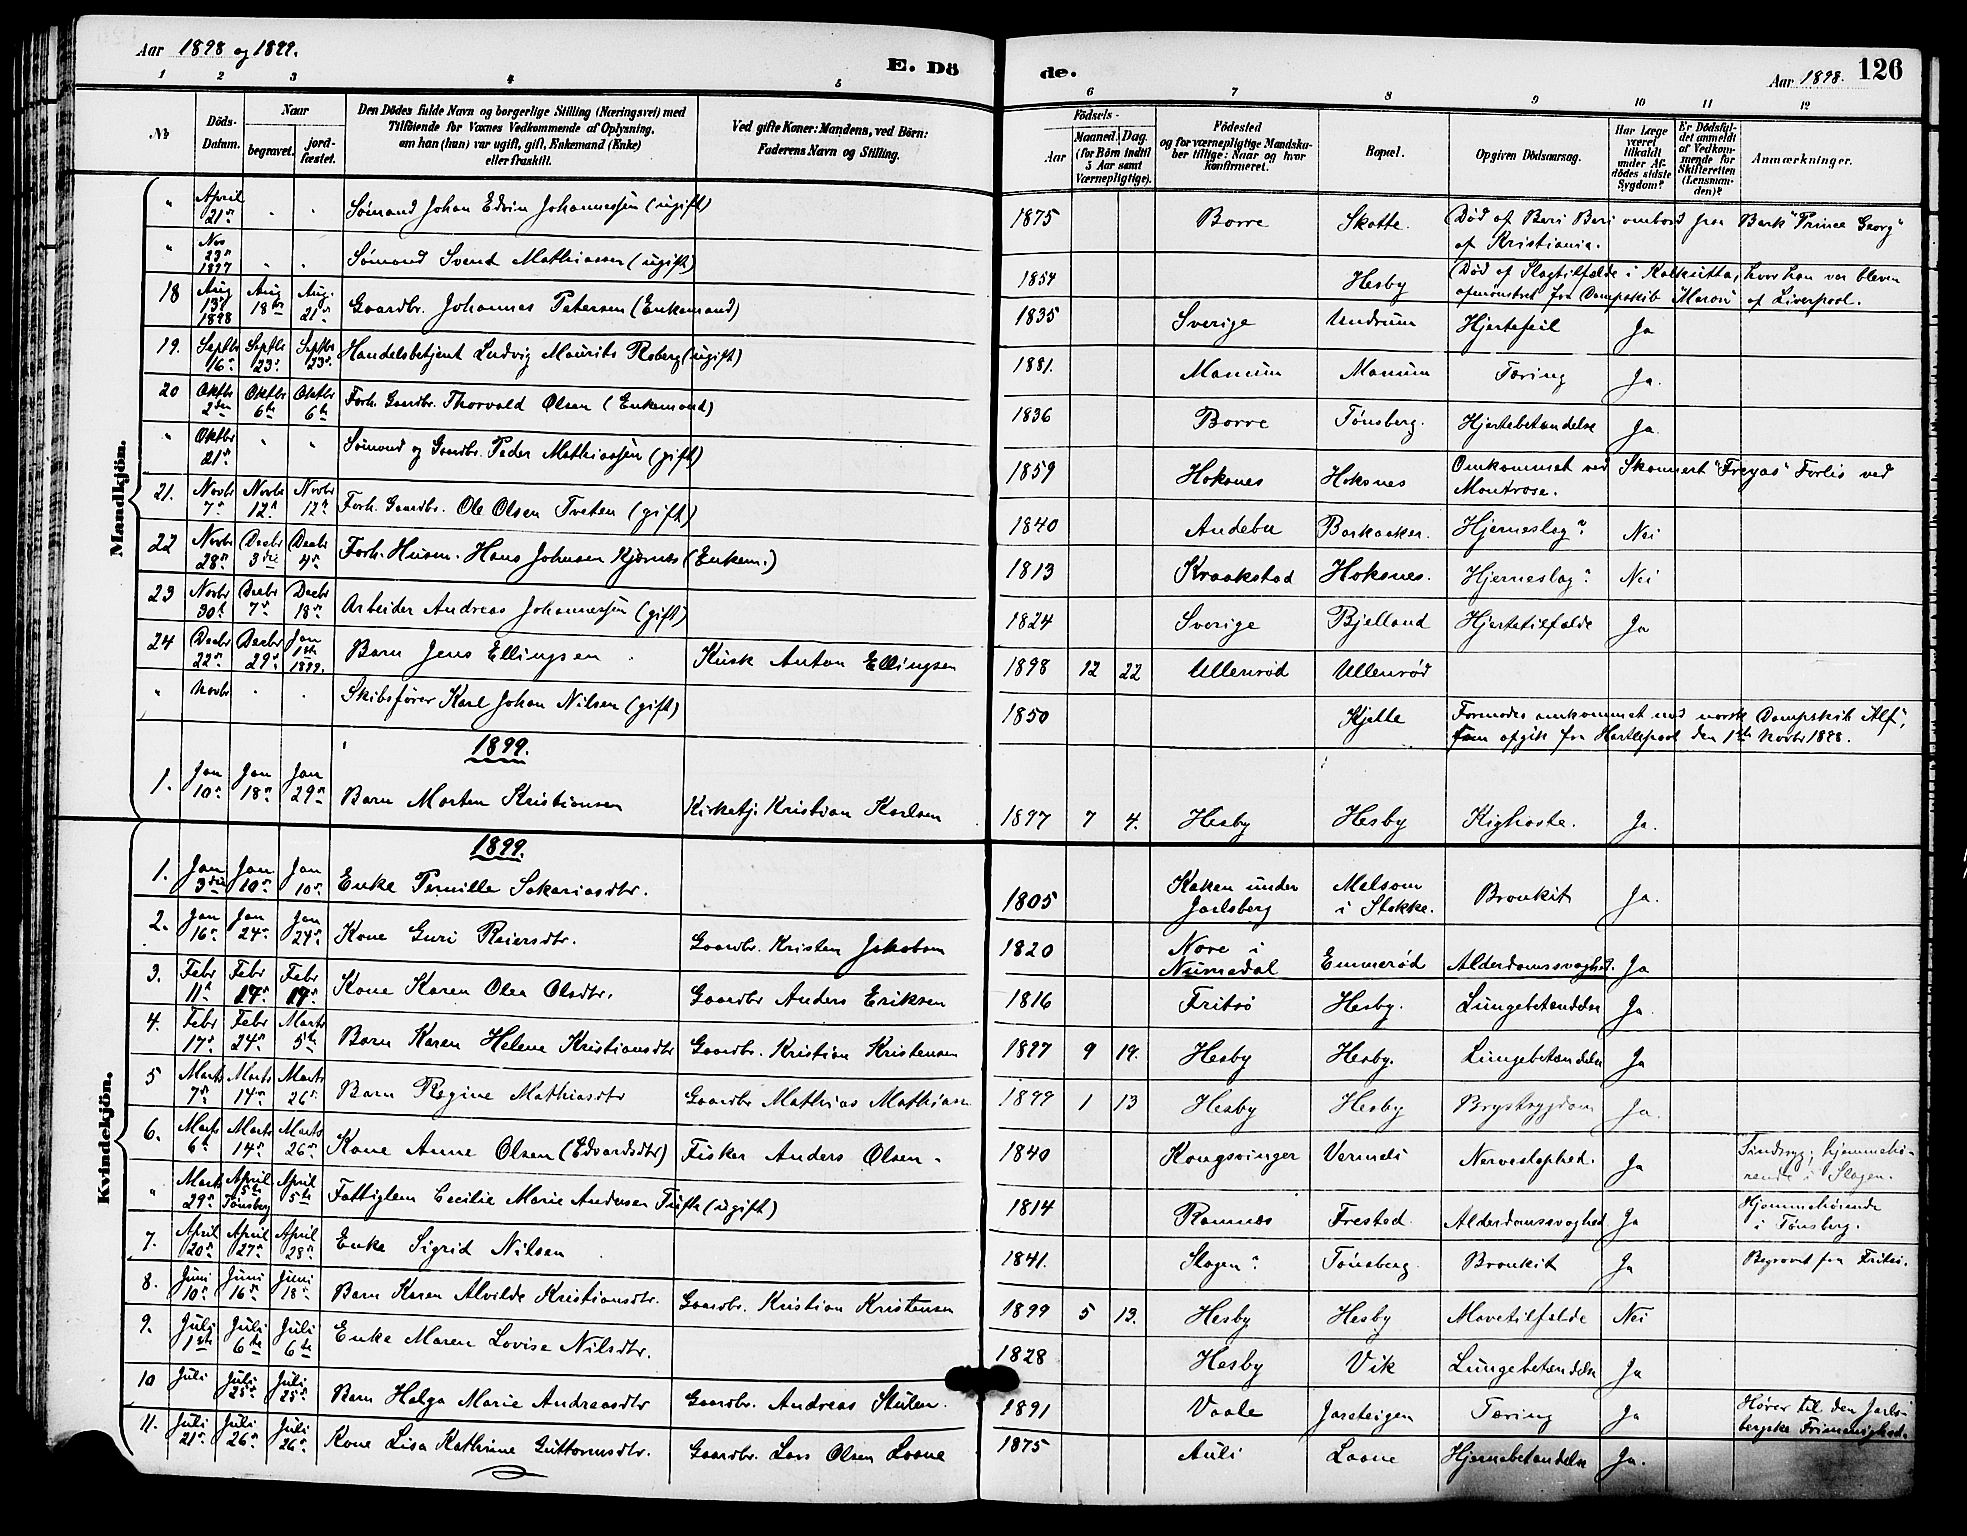 Aar 1898 og 1899.
E. Dö
de.
Aar 1898.
126
1 2 3 4 5 6 7 8 9 10 11 12
№
Döds-Datum.
Naar
begravet.
jord-fæstet.
Den Dödes fulde Navn og borgerlige Stilling (Næringsvei) med
Tilföiende for Voxnes Vedkommende af Oplysning,
om han (hun) var ugift, gift, Enkemand (Enke)
eller fraskilt.
Ved gifte Koner: Mandens, ved Börn:
Faderens Navn og Stilling.
Födsels-
Aar
Maaned. Dag.
(for Börn indtil
5 Aar samt
Værnepligtige).
Födested
og for værnepligtige Mandska-
ber tillige: Naar og hvor
Konfirmeret.
Bopæl.
Opgiven Dödsaarsag.
Har Læge
været
tilkaldt
under Af-
dödes sidste
Sygdom?
Er Dödsfal-
det anmeldt
af Vedkom-
mende for
Skifteretten
(Lensman-
den)?
Anmærkninger.
Mandkjön.
" April 21de " " Sømand Johan Edvin Johannessen (ugift) 1875 Borre Skotte. Død af Beri Beri ombord paa Bark "Prince Georg" af Kristiania.
" Nov 29de 1897 " " Sømand Svend Mathiassen (ugift) 1854 Hesby Død af Slagtilfælde i Kalkutta, hvor han var bleven afmønstret fra Dampskib "Maroir" af Liverpool.
18 Aug 13de 1898 Aug 18de Aug. 21de Gaardbr. Johannes Petersen (Enkemand) 1835 Sverige Undrum Hjertefeil Ja
19. Septbr 16de Septbr 23de Septbr 23de Handelsbetjent Ludvig Maurits Roberg (ugift) 1881. Manum Manum Tæring Ja.
20 Oktbr 2den Oktbr 6te Oktbr 6te Forh. Gaardbr. Thorvald Olsen (Enkemand) 1836 Borre Tønsberg. Hjertebetændelse Ja.
" Oktbr 21de " " Sømand og Gaardbr. Peder Mathiassen (gift) 1859 Hoksnes Hoksnes Omkommet ved Skonnert "Freyas" Forlis ved Montrose.
21. Novbr 7de Novbr 12te Novbr 12te Forh. Gaardbr. Ole Olsen Tveten (gift) 1840 Andebu Barkaaker. Hjerneslag? Nei
22 Novbr 28de Decbr 3die Decbr 4de Forh. Husm. Hans Johnsen Kjærnæs (Enkem.) 1813 Kraakstad Hoksnes. Hjerneslag? Nei
23 Novbr 30te Decbr 7de Decbr 18de Arbeider Andreas Johannessen (gift) 1824 Sverige Bjelland Hjertetilfælde Ja
24 Decbr 22de Decbr 29de Jan 1ste 1899. Barn Jens Ellingsen Kusk Anton Ellingsen 1898 12 22 Ullenrød Ullenrød
" Novbr " " Skibsfører Karl Johan Nilsen (gift) 1850 Kjelle Formodes omkommet med norsk Dampskib "Alf", som afgik fra Hartlepool den 1ste Novbr 1898.
1899.
1. Jan 10de Jan 18de Jan 29de Barn Morten Kristiansen Kirketj. Kristian Karlsen 1897 7 4. Hesby Hesby Kighoste. Ja.
Kvindekjön.
1899.
1. Jan 3die Jan 10de Jan 10de Enke Pernille Sakariasdtr. 1805 Kaken under Jarlsberg Melsom i Stokke. Bronkit Ja.
2. Jan 16de Jan 24de Jan 24de Kone Guri Reiersdtr. Gaardbr. Kristen Jakobsen 1820 Nore i Numedal Emmerød Alderdomssvaghed. Ja
3. Febr 11te Febr 19de Febr 19de Kone Karen Olea Olsdtr. Gaardbr Anders Eriksen 1816 Fritsø Hesby. Lungebetændelse Ja.
4. Febr 17de Febr 24de Marts 5te Barn Karen Helene Kristiansdtr Gaardbr. Kristian Kristensen 1897 9 19. Hesby Hesby. Lungebetændelse Ja
5 Marts 7de Marts 14de Marts 26de Barn Regine Mathiasdtr Gaardbr Mathias Mathiasen 1899 1 13 Hesby Hesby Brystsygdom Ja.
6. Marts 6te Marts 14de Marts 26de Kone Anne Olsen (Edvardsdtr) Fisker Anders Olsen. 1840 Kongsvinger Vermeli Nervesløphed. Ja Sindssyg; hjemmehørende i Slagen.
" Marts 29de April 5te Tønsberg April 5te Fattiglem Cecilie Marie Andersen Tufte (ugift) 1814 Ramnæs Frestad. Alderdomssvaghed Ja Hjemmehørende i Tønsberg.
7. April 20de April 27de April 28de Enke Sigrid Nilsen 1841. Slagen? Tønsberg. Bronkit Ja Begravet fra Fritsø.
8. Juni 10de Juni 16de Juni 18de Barn Karen Alvilde Kristiansdtr. Gaardbr. Kristian Kristensen 1899 5 13. Hesby Hesby Mavetilfælde Nei
9. Juli 1ste Juli 6te Juli 6te Enke Maren Lovise Nilsdtr. 1828 Hesby Vik Lungebetændelse Ja
10 Juli Juli 25de Juli 25de Barn Helga Marie Andreasdtr Gaardbr. Andreas Stulen. 1891 Vaale Jareteigen Tæring Ja Hører til den Jarlsbergske Frimenighed.
11. Juli 21de Juli 26de Juli 26de Kone Lisa Kathrine Guttormsdtr. Gaardbr. Lars Olsen Laane 1875 Auli Laane Hjernebetændelse Ja.